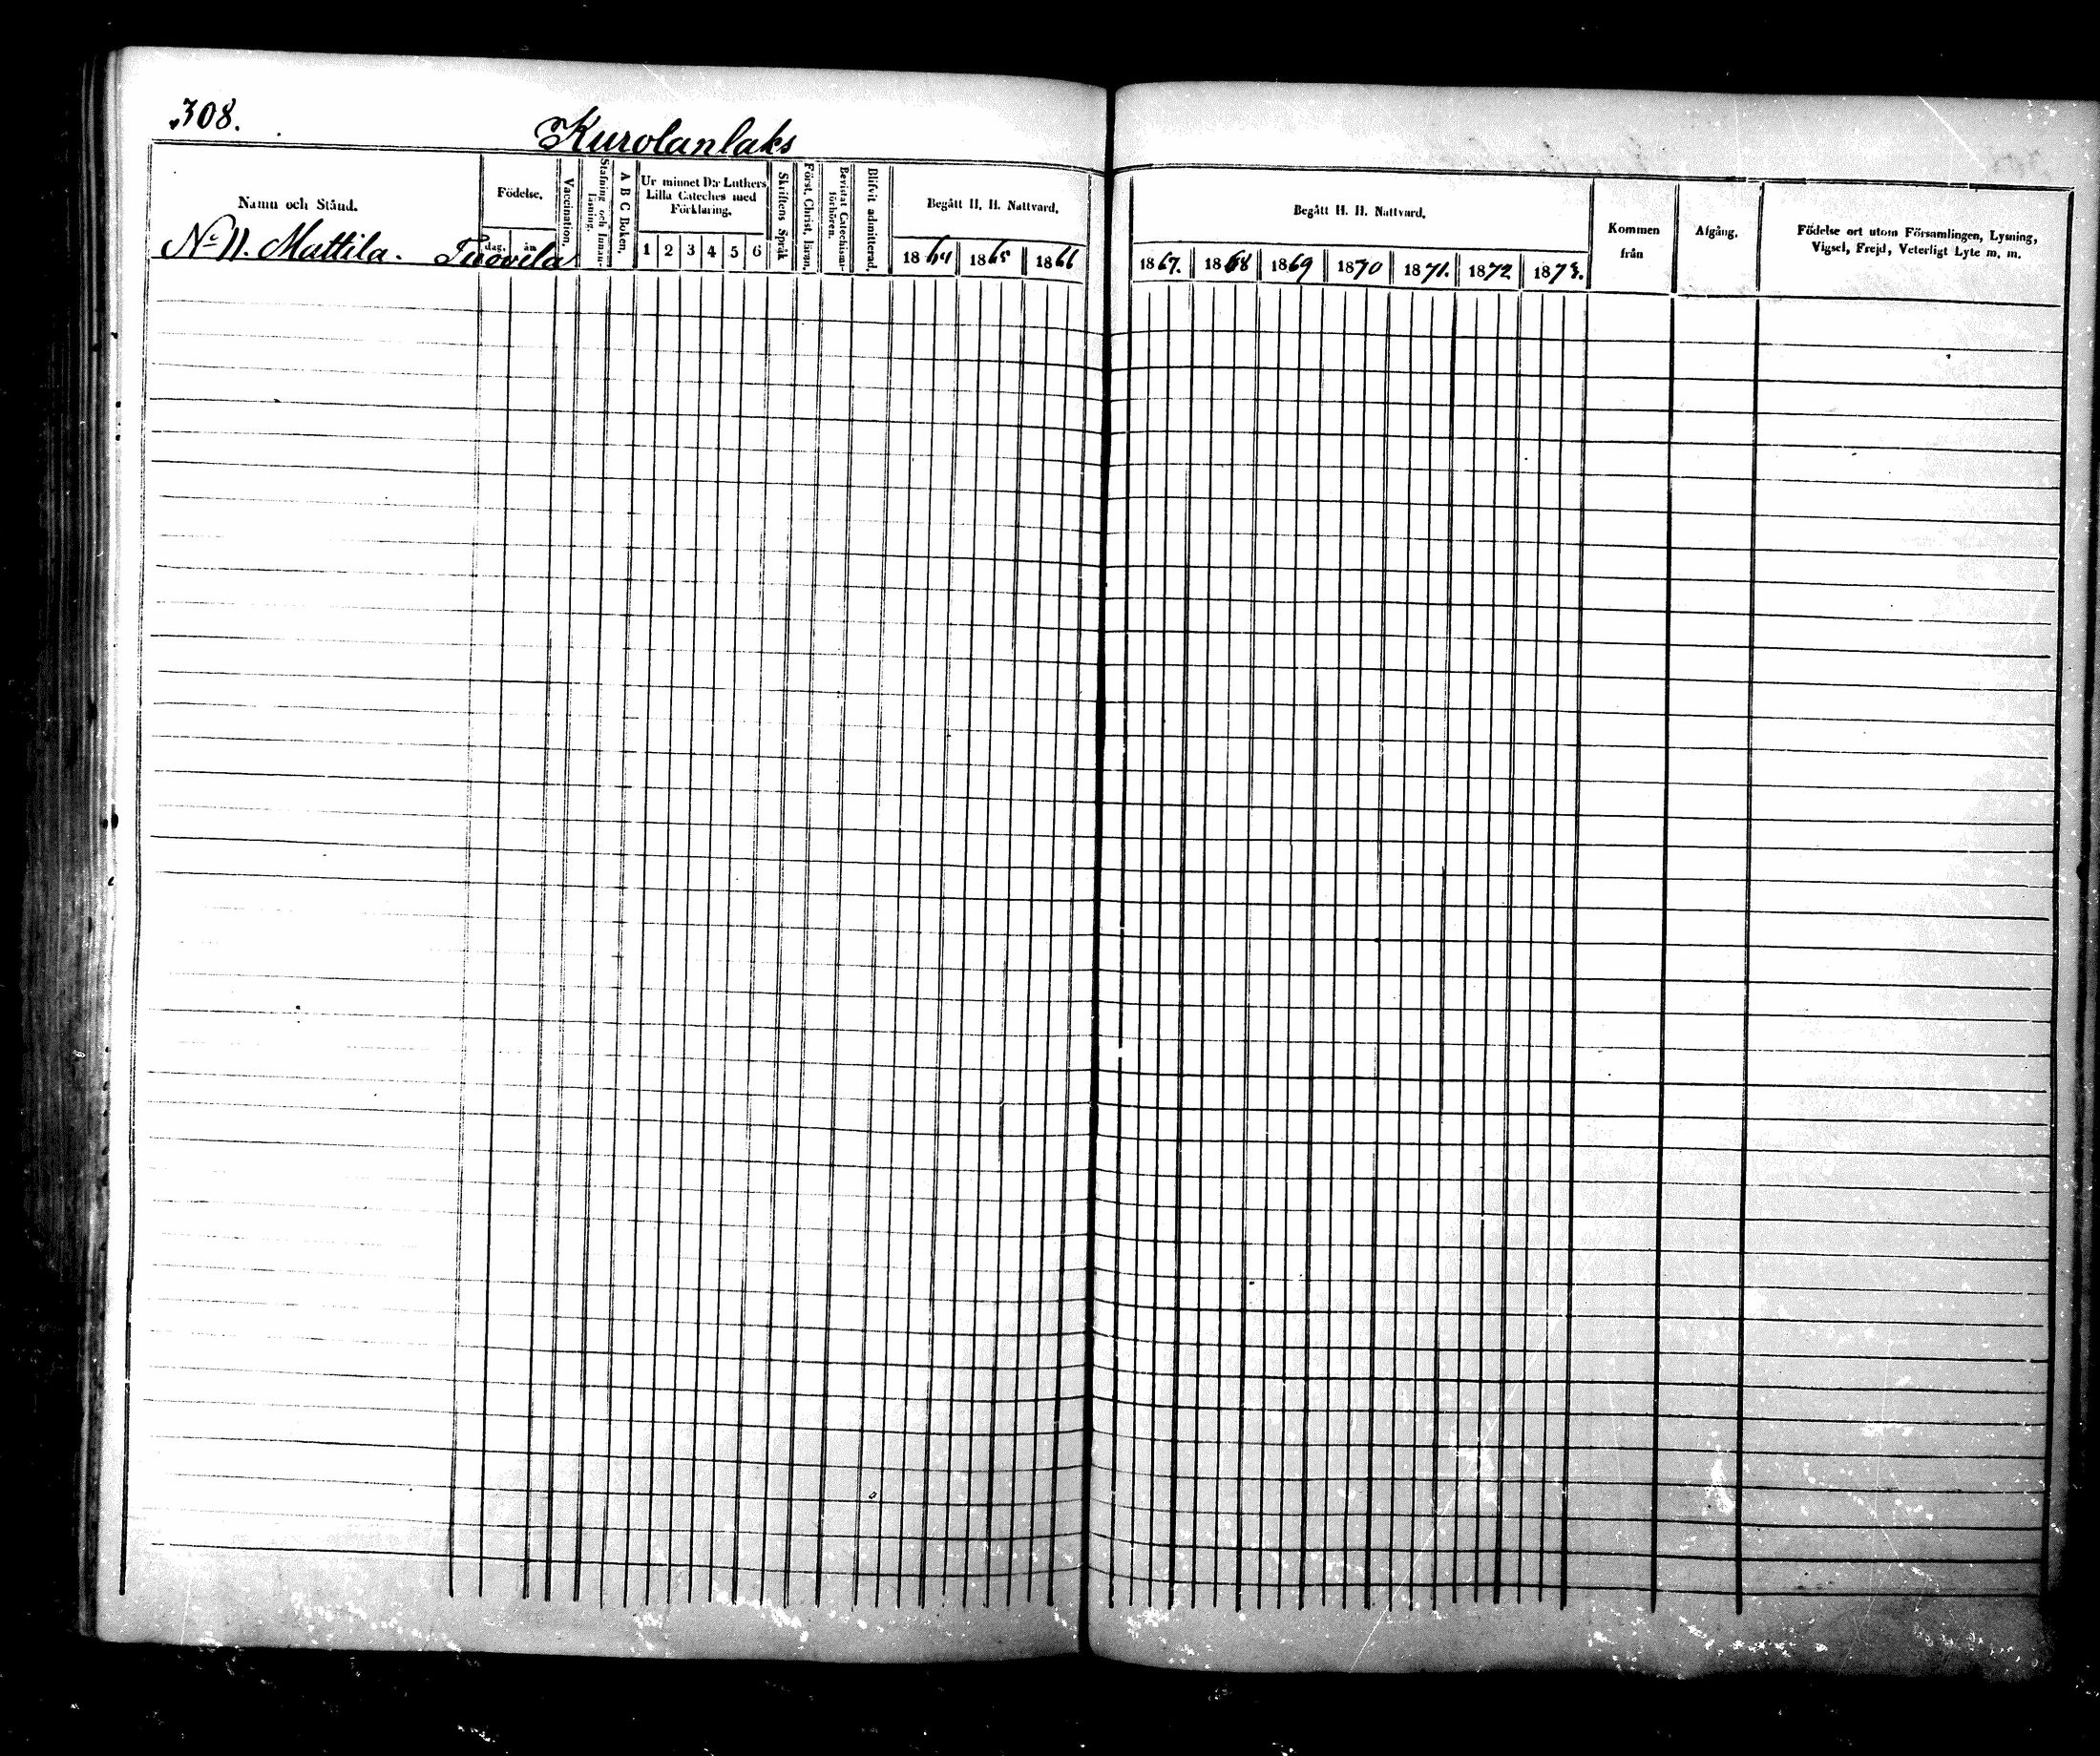 308.
Kurolanlaks
Namn och Stånd.
Födelse.
dag. år
Vaccination.
Stafning och Innan-läsning.
A B C Boken.
Ur minnet D:r Luthers
Lilla Cateches med
Förklaring.
1 2 3 4 5 6
Skriftens Språk
Först. Christ. läran.
Bevistat Catechismi-förhören.
Blifvit admitterad.
Begått H. H. Nattvard.
1864 1865 1866
Nº 11. Mattila. Tuovila
Begått H. H. Nattvard.
1867. 1868 1869 1870 1871. 1872 1873.
Kommen
från
Afgång.
Födelse ort utom Församlingen, Lysning,
Vigsel, Frejd, Veterligt Lyte m. m.